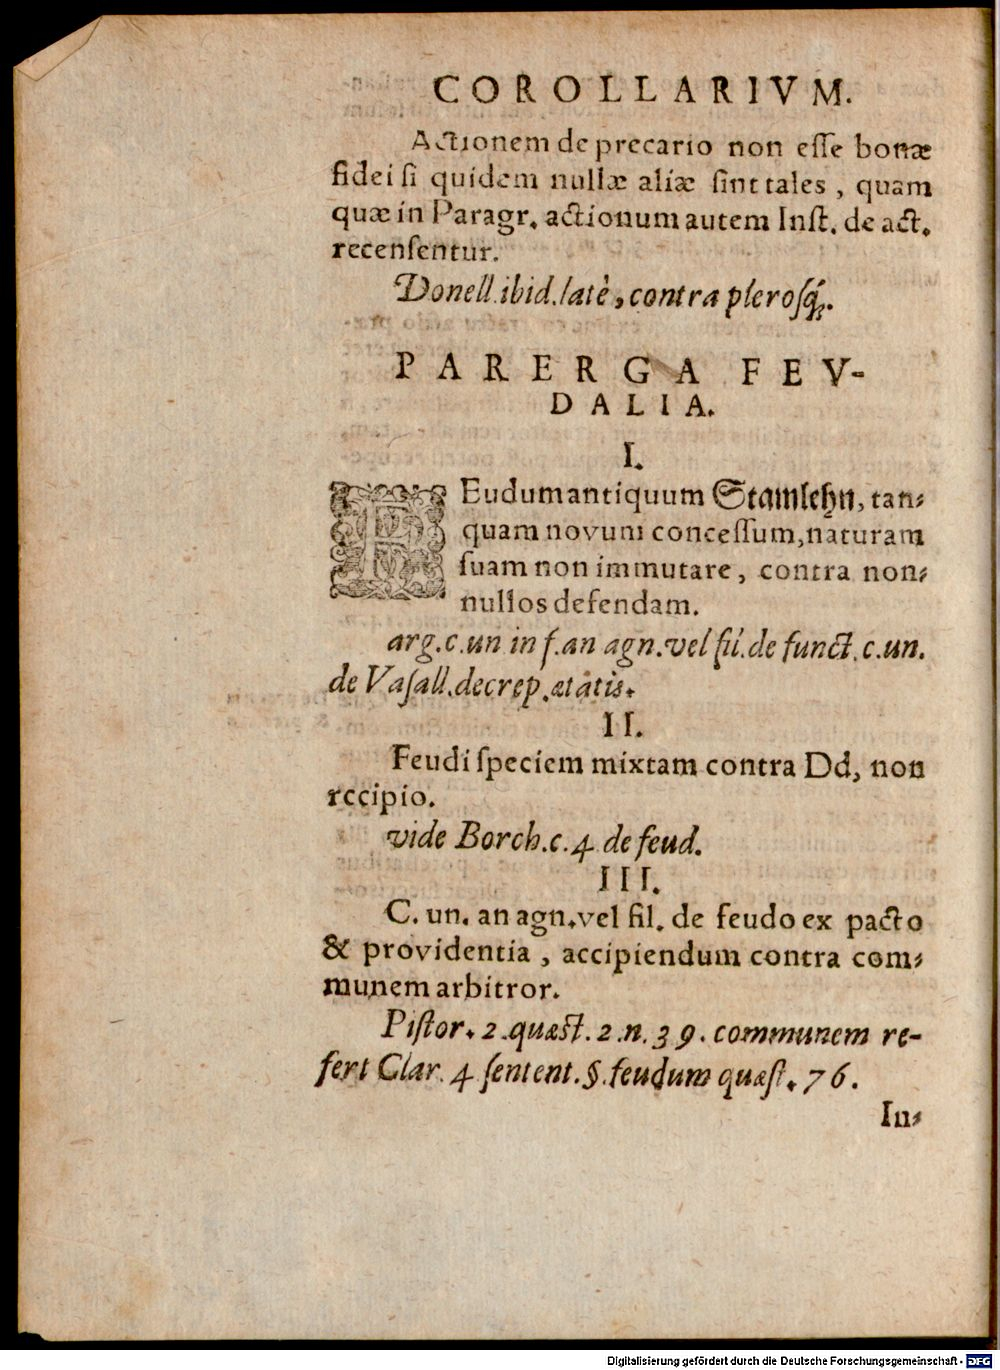 COROLLARIVM.
Actionem de precario non eſſe bonæ
fidei ſi quidem nullæ aliæ ſint tales, quam
quæ in Paragr. actionum autem Inſt. de act.
recenſentur.
Donell. ibid. latè, contra pleroſq́;.
PARERGA FEV-
DALIA.
I.
FEudum antiquum Stamlehn, tan-
quam novum conceſſum, naturam
ſuam non immutare, contra non-
nullos defendam.
arg. c. un in f. an agn. vel fil. de funct. c. un.
de Vaſall. decrep. ætatis.
II.
Feudi ſpeciem mixtam contra Dd, non
recipio.
vide Borch. c. 4 de feud.
III.
C. un. an agn. vel fil. de feudo ex pacto
& providentia, accipiendum contra com-
munem arbitror.
Piſtor. 2. quæſt. 2. n. 39. communem re-
fert Clar. 4 ſentent. §. feudum quæſt. 76.
In-
Digitalisierung gefördert durch die Deutsche Forschungsgemeinschaft - DFG